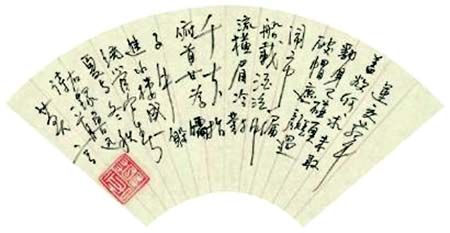 運交華
蓋欲何求未敢
翻身已碰頭
破帽遮顏過
鬧市漏
船載酒泛中
流橫眉冷對
千夫指
俯首甘為孺
子牛躲
進小樓成一
統管它冬夏
與春秋
右錄魯迅
詩